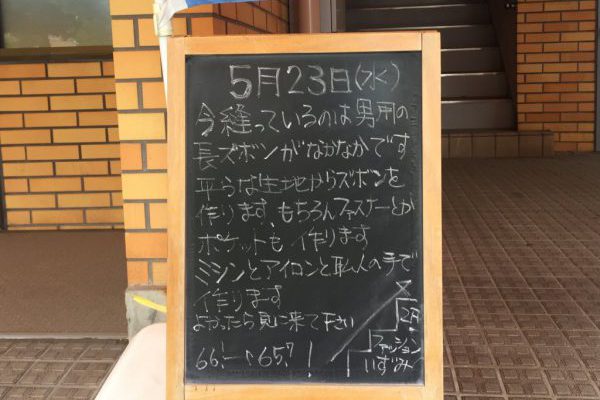 5月23日(水)
今縫っているのは男用の
長ズボンがなかなかです
平らな生地からズボンを
作ります、もちろんファスナーとか
ポケットも作ります
ミシンとアイロンと私人の手で
作ります
よかったら見に来て下さい
2F
ファッション
いずみ